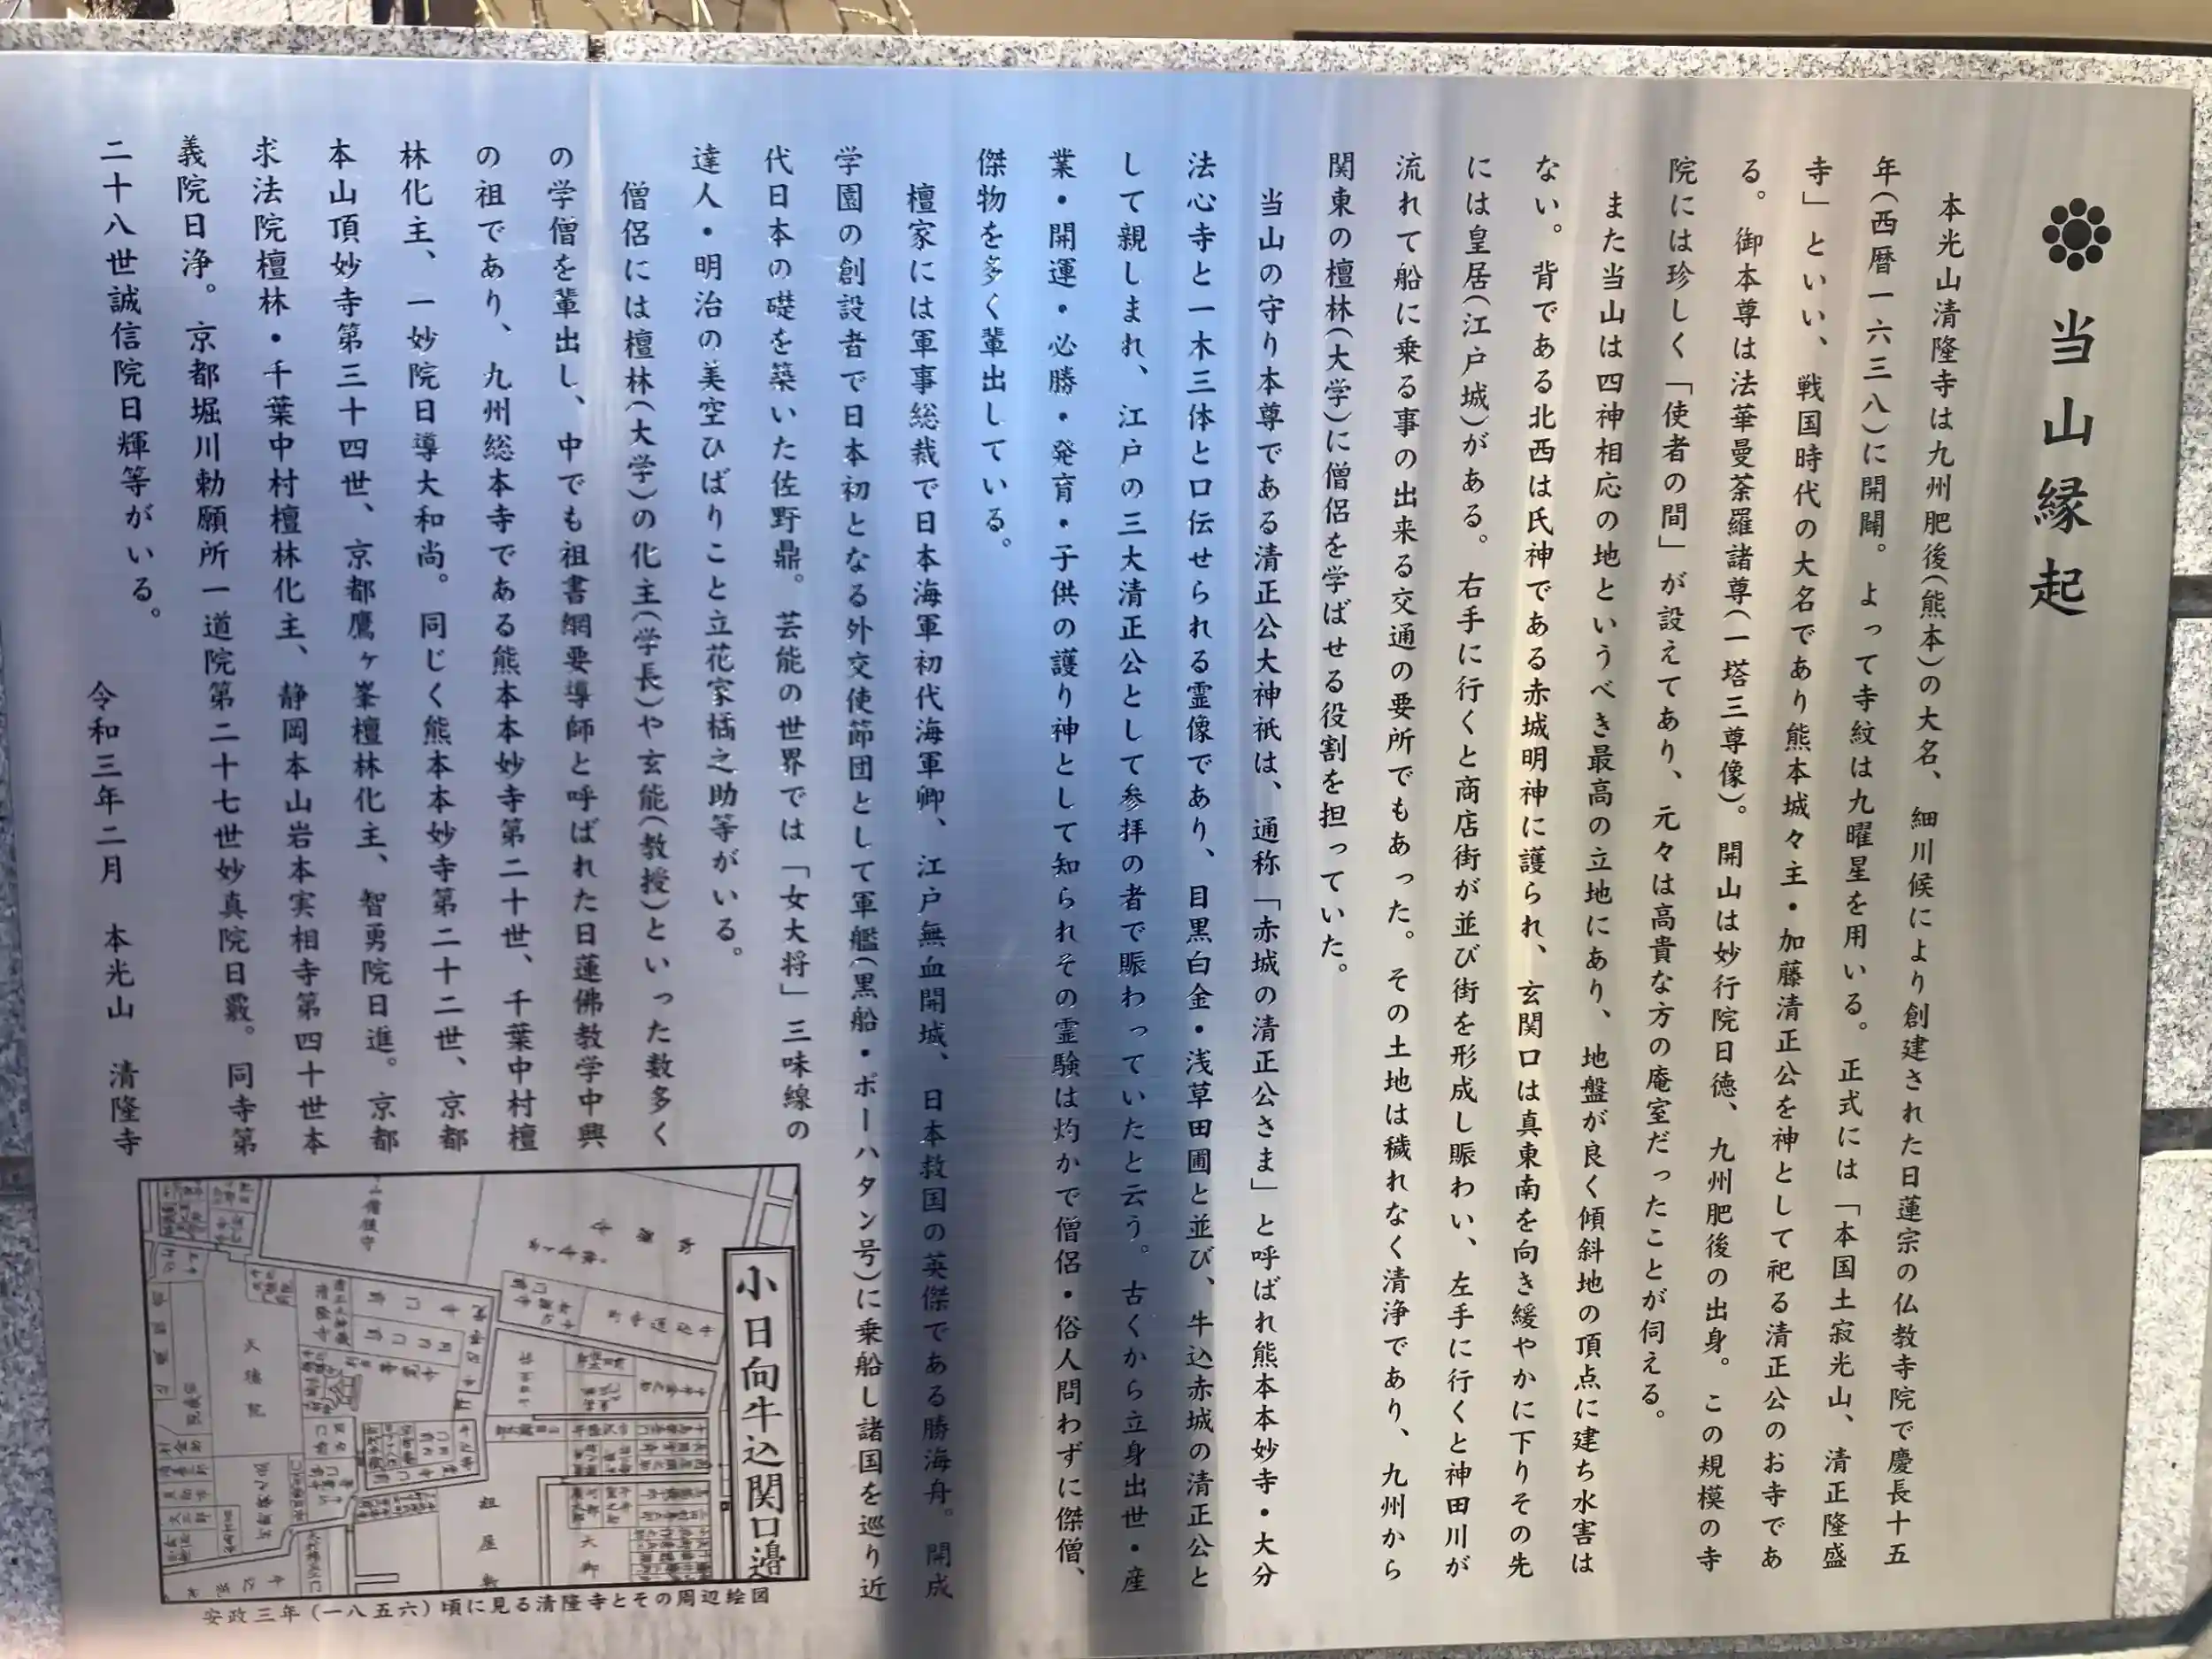 当山縁起
本光山清隆寺は九州肥後(熊本)の大名、細川候により創建された日蓮宗の仏教寺院で慶長十五
年(西暦一六三八)に開闢。よって寺紋は九曜星を用いる。正式には「本国土寂光山、清正隆盛
寺」といい、戦国時代の大名であり熊本城々主・加藤清正公を神として祀る清正公のお寺であ
る。御本尊は法華曼荼羅諸尊(一塔三尊像)。開山は妙行院日徳、九州肥後の出身。この規模の寺
院には珍しく「使者の間」が設えてあり、元々は高貴な方の庵室だったことが伺える。
また当山は四神相応の地というべき最高の立地にあり、地盤が良く傾斜地の頂点に建ち水害は
ない。背である北西は氏神である赤城明神に護られ、玄関口は真東南を向き緩やかに下りその先
には皇居(江戸城)がある。右手に行くと商店街が並び街を形成し賑わい、左手に行くと神田川が
流れて船に乗る事の出来る交通の要所でもあった。その土地は穢れなく清浄であり、九州から
関東の檀林(大学)に僧侶を学ばせる役割を担っていた。
当山の守り本尊である清正公大神祇は、通称「赤城の清正公さま」と呼ばれ熊本本妙寺・大分
法心寺と一木三体と口伝せられる霊像であり、目黒白金・浅草田圃と並び、牛込赤城の清正公と
して親しまれ、江戸の三大清正公として参拝の者で賑わっていたと云う。古くから立身出世・産
業・開運・必勝・発育・子供の護り神として知られその霊験は灼かで僧侶・俗人問わずに傑僧、
傑物を多く輩出している。
檀家には軍事総裁で日本海軍初代海軍卿、江戸無血開城、日本救国の英傑である勝海舟。開成
学園の創設者で日本初となる外交使節団として軍艦(黒船・ポーハタン号)に乗船し諸国を巡り近
代日本の礎を築いた佐野鼎。芸能の世界では「女大将」三味線の
達人・明治の美空ひばりこと立花家橘之助等がいる。
僧侶には檀林(大学)の化主(学長)や玄能(教授)といった数多く
の学僧を輩出し、中でも祖書綱要導師と呼ばれた日蓮佛教学中興
の祖であり、九州総本寺である熊本本妙寺第二十世、千葉中村檀
林化主、一妙院日導大和尚。同じく熊本本妙寺第二十二世、京都
本山頂妙寺第三十四世、京都鷹ヶ峯檀林化主、智勇院日進。京都
求法院檀林・千葉中村檀林化主、静岡本山岩本実相寺第四十世本
義院日浄。京都堀川勅願所一道院第二十七世妙真院日覈。同寺第
二十八世誠信院日輝等がいる。
令和三年二月 本光山 清隆寺
小日向牛込関口邉
清隆寺
天徳院
安政三年(一八五六)頃に見る清隆寺とその周辺絵図